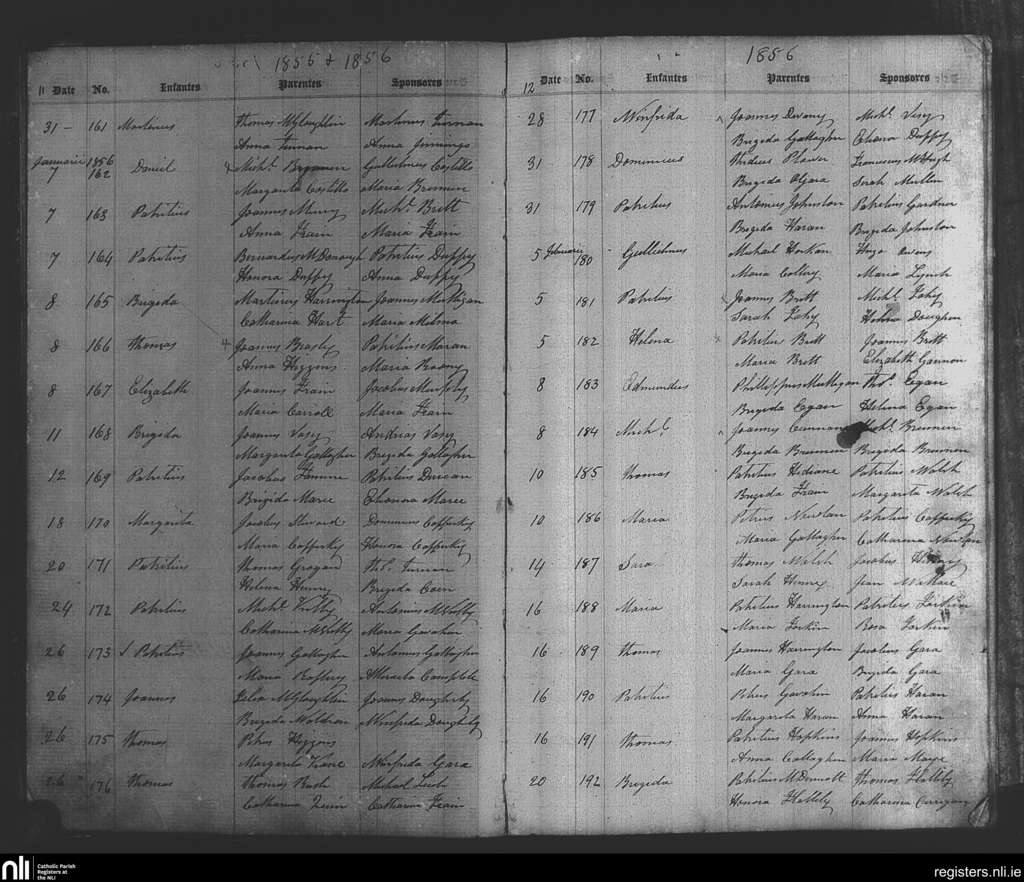 1855 & 1856
11 Date No. Infantes Parentes Sponsores
31 - 161 Martinus Thomas McLoughlin Martinus Tiernan
Anna Tiernan Anna Jennings
Januarii 1856
7 162 Daniel Michl. Brennen Gulielmus Costello
Margarita Costello Maria Brennen
7 163 Patritius Joannes Michl. Brett
Anna Frain Maria Frain
7 164 Patritius Bernardus McDonough Patritius Duffy
Honora Duffy Anna Duffy
8 165 Brigida Martinus Harrington Joannes Mulligan
Catharina Hart Maria
8 166 Thomas Joannes Patritius Moran
Anna Higgons Maria
8 167 Elizabeth Joannes Frain Jacobus Murphy
Maria Carroll Maria Frain
11 168 Brigida Joannes Vasy Andrias Vasy
Margarita Gallagher Brigida Gallagher
12 169 Patritius Jacobus Patritius Duncan
Brigida Maree Elionora Maree
18 170 Margarita Jacobus Steward Dominicus Cafferkey
Maria Cafferkey Honora Cafferkey
20 171 Patritius Thomas Grogan Ths. Tiernan
Helena Henry Brigida Coen
24 172 Patritius Michl. Antonius
Catharina Maria Gavahan
26 173 Patritius Joannes Gallagher Antonius Gallagher
Maria Raftery
26 174 Joannes McLoughlin Joannes Dougherty
Brigida Waldron Winifrida Dougherty
26 175 Thomas Petrus Higgons
Margarita Winifrida Gara
26 176 Thomas Thomas Rush Michael
Catharina Quin Catharina Frain
1856
12 Date No. Infantes Parentes Sponsores
28 177 Winifrida Joannes Devany Michl. Vesy
Brigida Gallagher Duffy
31 178 Dominicus Franciscus McHugh
Brigida OGara Sarah Mullin
31 179 Patritius Antonius Johnston Patritius Gardner
Brigida Haran Brigida Johnston
5 Februarii 180 Gulielmus Michael Horkan Hugo Owens
Maria Maria Lynch
5 181 Patritius Joannes Brett Michl. Fahy
Sarah Fahy Helena
5 182 Helena Patritius Brett Joannes Brett
Maria Brett Elizabeth Gannon
8 183 Edmundus Phillippus Mulligan Ths. Egan
Brigida Egan Helena Egan
8 184 Michl. Joannes Cunnane Michl. Brennen
Brigida Brennen Brigida Brennen
10 185 Thomas Patritius Patritius Walsh
Brigida Frain Margarita Walsh
10 186 Maria Petrus Newlan Patritius Cafferkey
Maria Gallagher Catharina Newlan
14 187 Sara Thomas Walsh Jacobus Henry
Sarah Henry Jean
16 188 Maria Patritius Harrington Patritius
Maria Rosa
16 189 Thomas Joannes Harrington Jacobus Gara
Maria Gara Brigida Gara
16 190 Patritius Petrus Gavahan Patritius Haran
Margarita Haran Anna Haran
16 191 Thomas Patritius Hopkins Joannes Hopkins
Anna Callaghan Maria
20 192 Brigida Patritius McDonnell Thomas
Honora Catharina Corrigan
nli Catholic Parish
Registers at
the NLI
registers.nli.ie